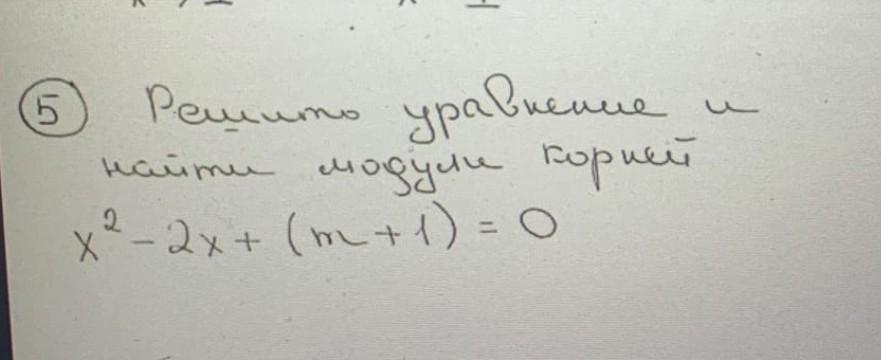 5 Решить уравнение и
найти модули корней
x² - 2x + (m + 1) = 0